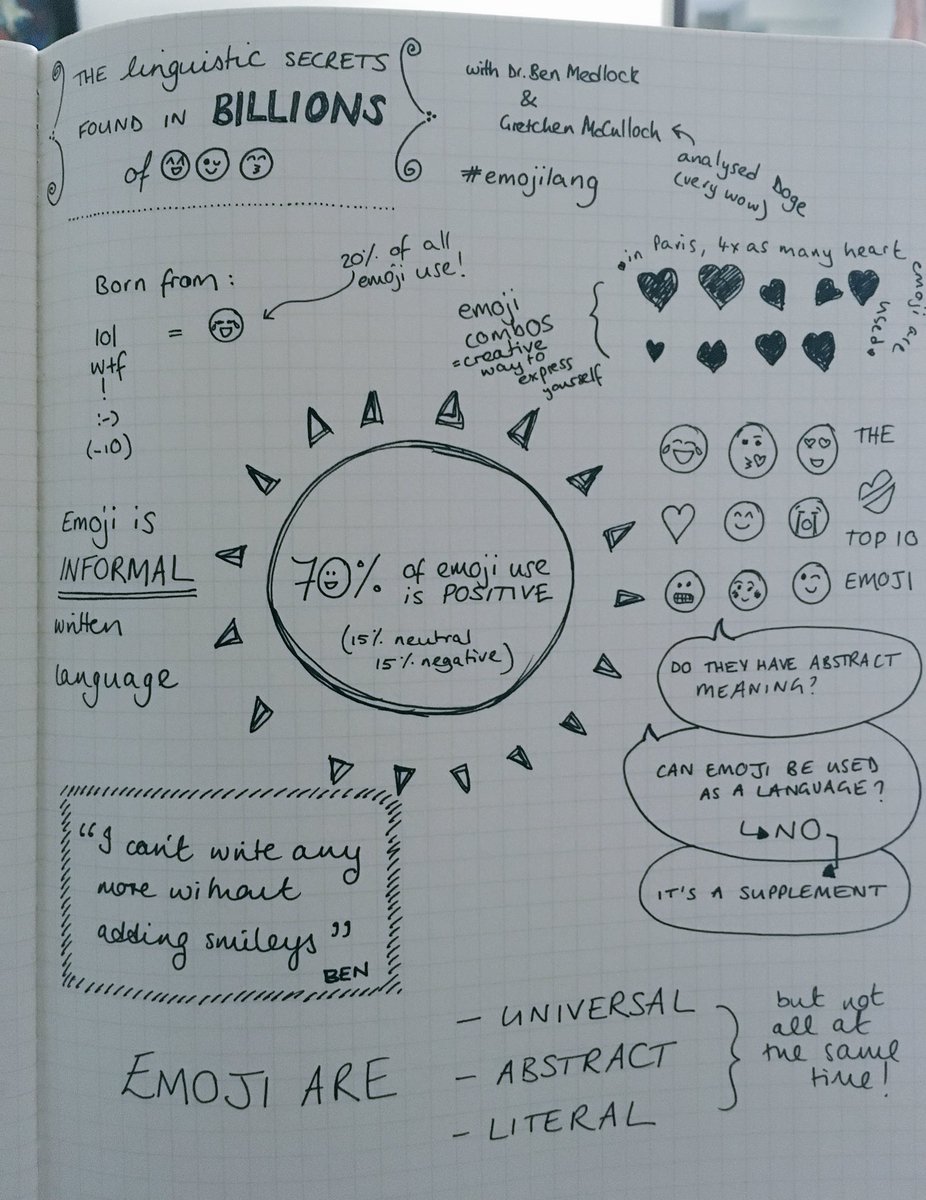 THE linguistic SECRETS
FOUND IN BILLIONS
of
with Dr. Ben Medlock
&
Gretchen McCulloch
analysed Doge
(very wow)
#emojilang
Born from:
20% of all
emoji use!
lol =
wtf
!
:-)
(-10)
emoji
combos
=creative
way to
express
yourself
in Paris, 4x as many heart
emoji are
used.
THE
TOP 10
EMOJI
Emoji is
INFORMAL
written
language
70% of emoji use
is POSITIVE
(15% neutral
15% negative)
DO THEY HAVE ABSTRACT
MEANING?
CAN EMOJI BE USED
AS A LANGUAGE?
NO
IT'S A SUPPLEMENT
"I can't write any
more without
adding smileys"
BEN
EMOJI ARE
- UNIVERSAL
- ABSTRACT
- LITERAL
but not
all at
the same
time!